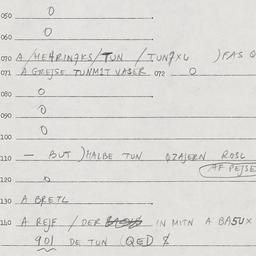 050 0
060 0
070 A / TUN / TUN7XL )FAS
071 A GREJSE TUNMIT VASER 072 0
080 0
090 0
100 0
110 — BUT )HALBE TUN ROSL
AF PEJSE
120 0
130 A BRETL
140 A REJF / DER IN MITN A BA5UX
901 DE TUN (QED)